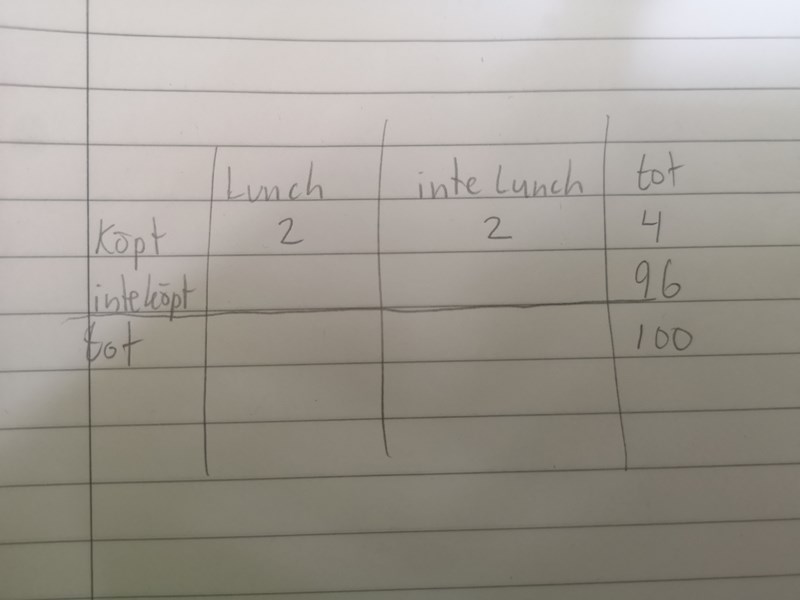 Lunch inte Lunch tot
Köpt 2 2 4
inteköpt 96
tot 100